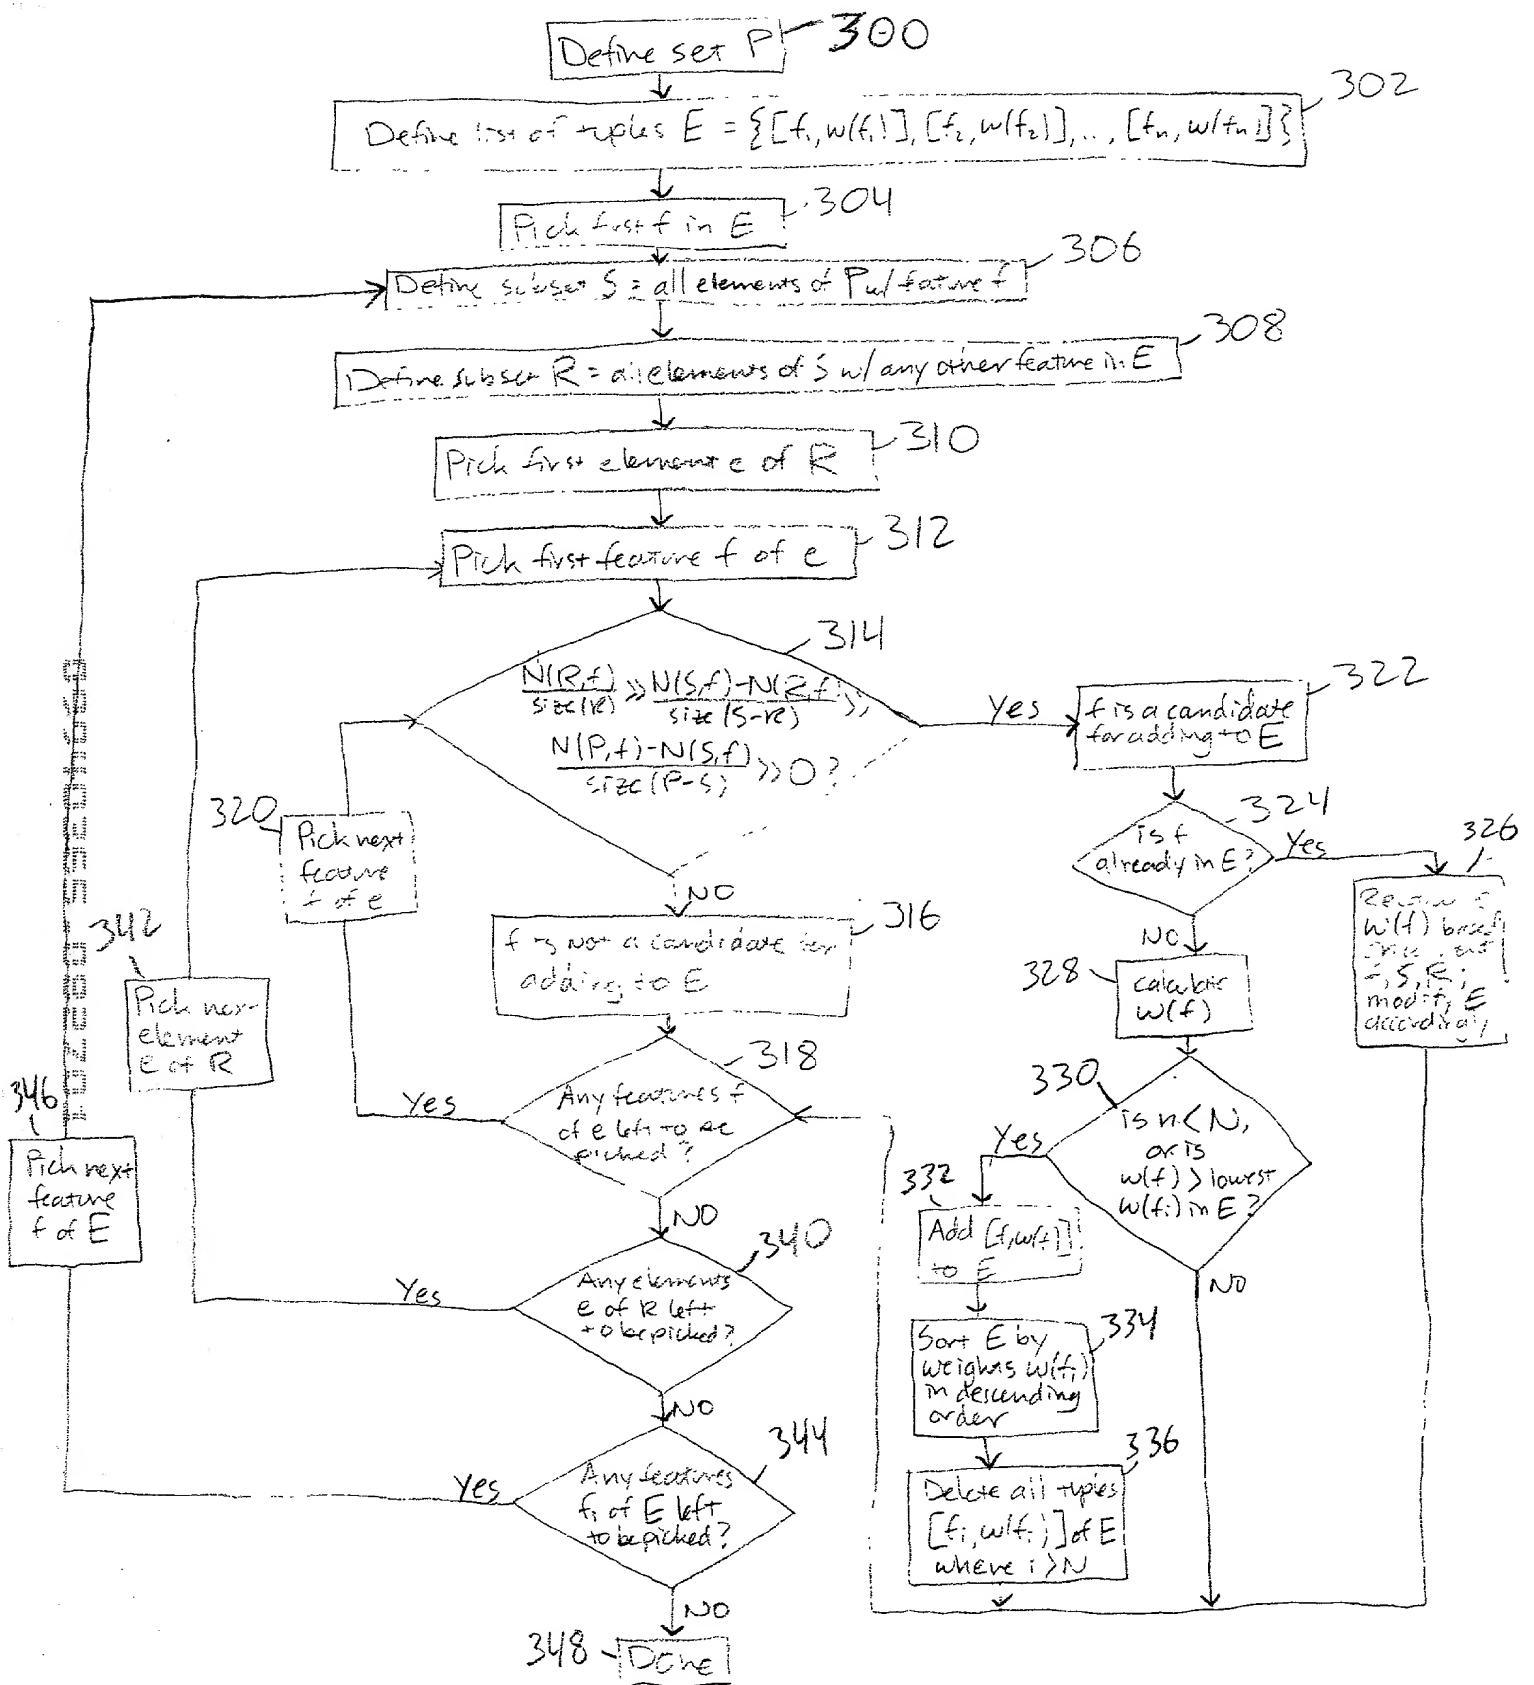 Define set P
300
302
Define list of tuples E = {[f₁,w(f₁)],[f₂,w(f₂)],..,[fn,w(fn)]}
304
Pick first f in E
306
Define subset S = all elements of P w/ feature f
308
Define subset R = all elements of S w/ any other feature in E
310
Pick first element e of R
312
Pick first feature f of e
314
N(R,f)/size(R) >> N(S,f)-N(R,f)/size(S-R) >>
N(P,f)-N(S,f)/size(P-S) >> 0?
Yes
322
f is a candidate
for adding to E
324
is f
already in E?
Yes
326
w(f) based
f, S, R;
modify E
accordingly
NO
328
calculate
w(f)
330
is n<N,
or is
w(f) > lowest
w(fi) in E?
Yes
NO
332
Add [f,w(f)]
to E
334
Sort E by
weights w(fi)
in descending
order
336
Delete all tuples
[fi, w(fi)] of E
where i>N
NO
316
f is not a candidate for
adding to E
318
Any features f
of e left to be
picked?
Yes
320
Pick next
feature
f of e
NO
340
Any elements
e of R left
to be picked?
Yes
342
Pick next
element
e of R
NO
344
Any features
fi of E left
to be picked?
Yes
346
Pick next
feature
f of E
NO
348
Done